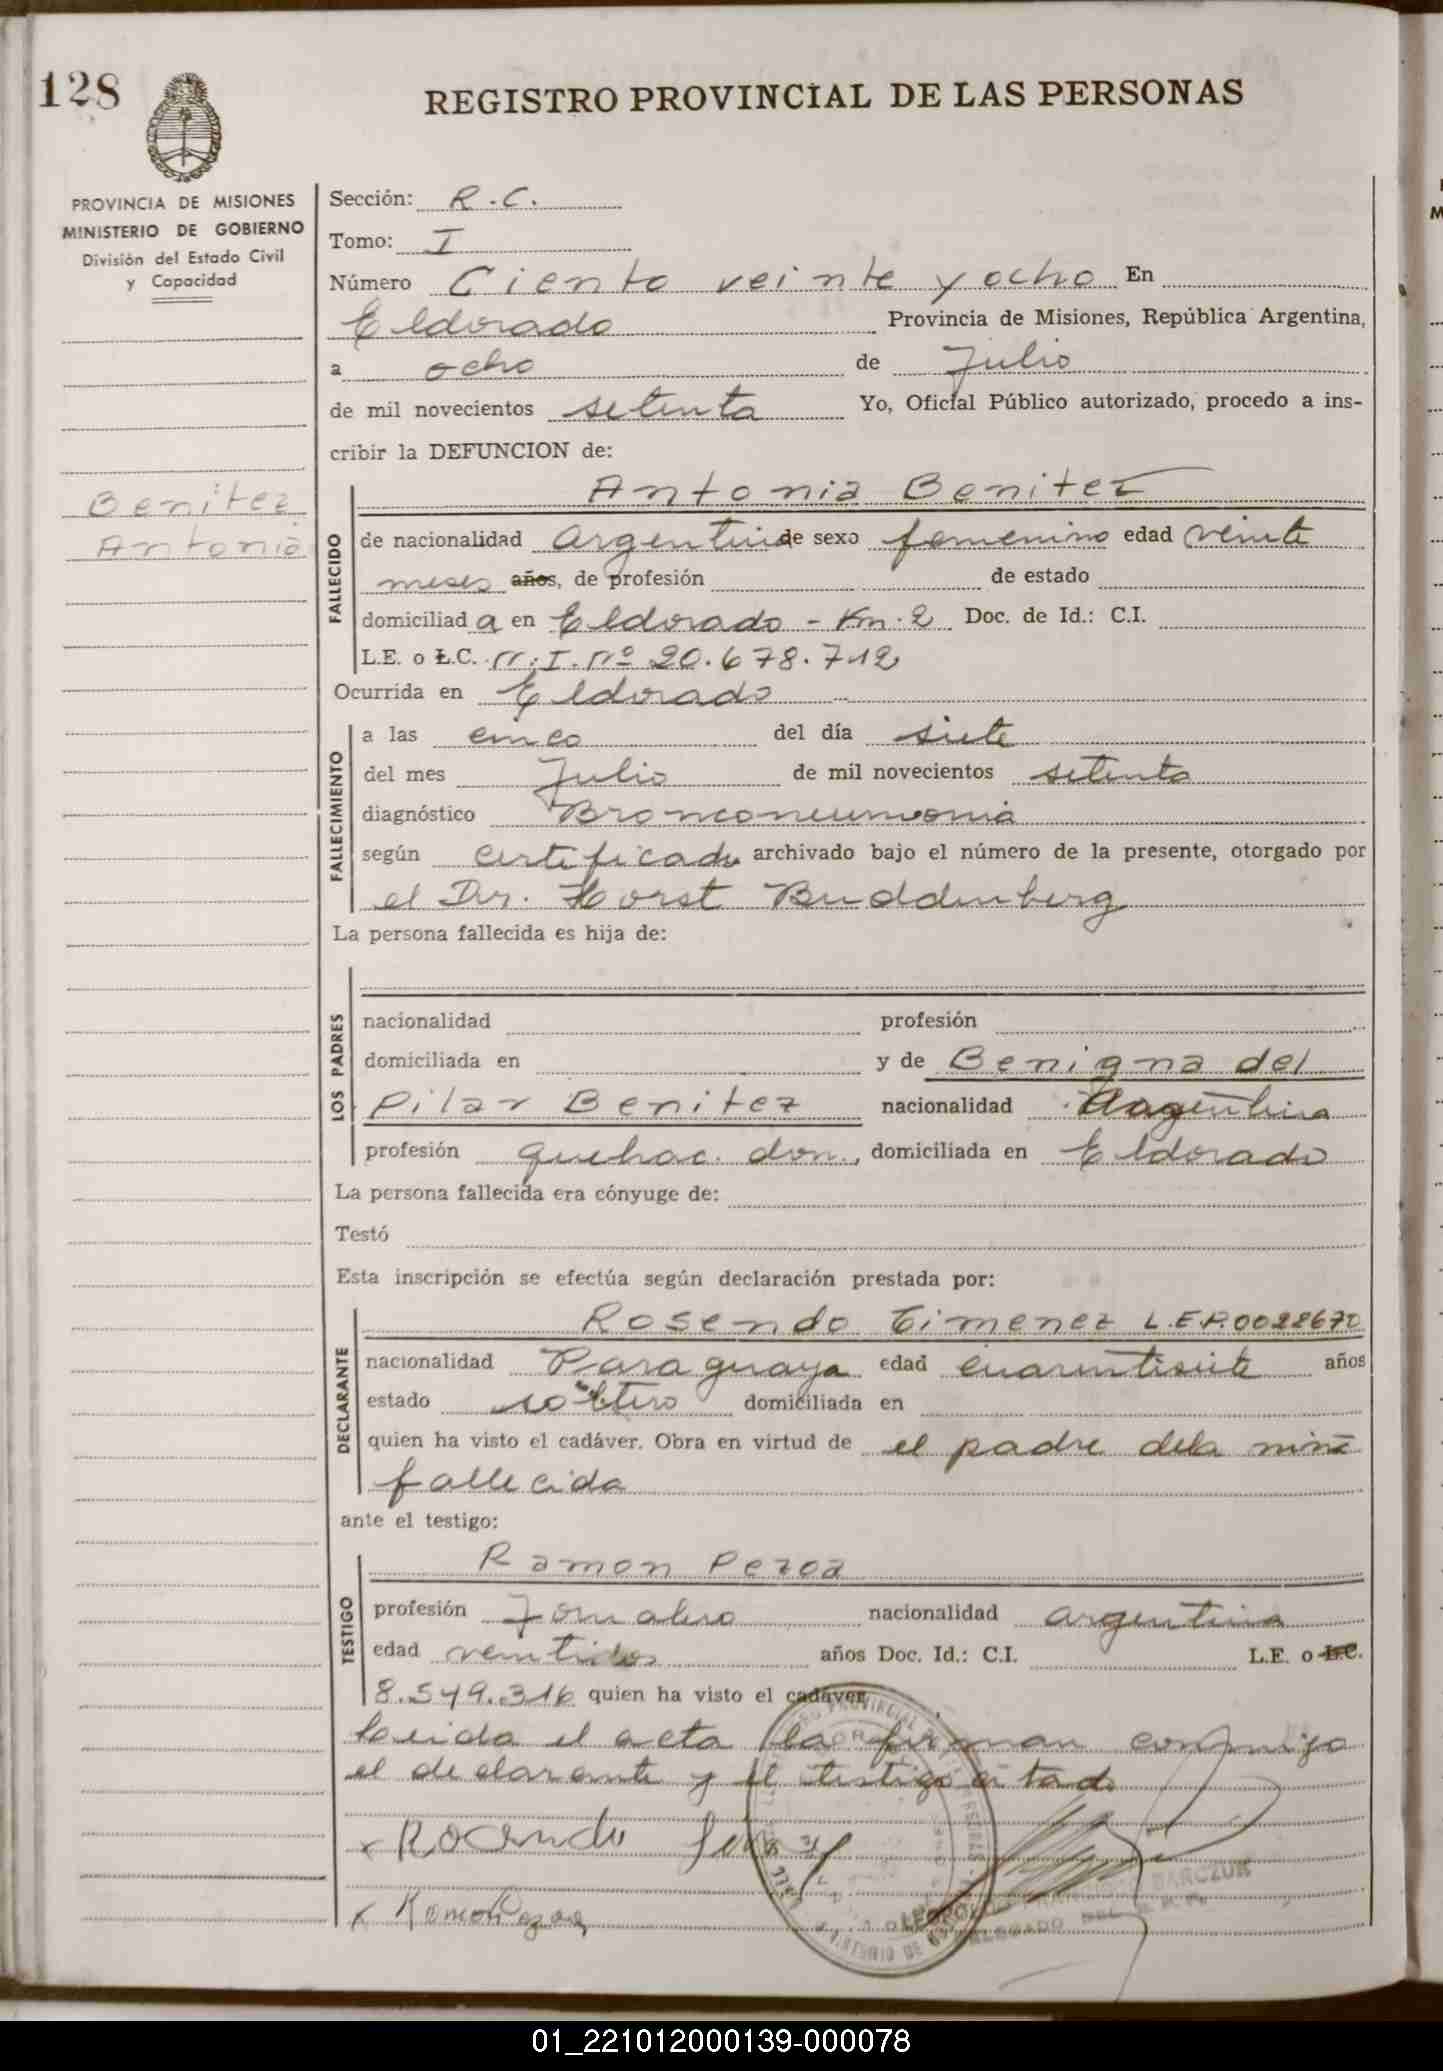 128
REGISTRO PROVINCIAL DE LAS PERSONAS
PROVINCIA DE MISIONES
MINISTERIO DE GOBIERNO
División del Estado Civil
y Capacidad
Benitez
Antonia
Sección: R.C.
Tomo: I
Número Ciento veinte y ocho En
Eldorado Provincia de Misiones, República Argentina,
a ocho de Julio
de mil novecientos setenta Yo, Oficial Público autorizado, procedo a ins-
cribir la DEFUNCION de:
FALLECIDO
Antonia Benitez
de nacionalidad argentina de sexo femenino edad veinte
meses años, de profesión de estado
domiciliada en Eldorado - Km. 2 Doc. de Id.: C.I.
L.E. o L.C. N.I. Nº 20.678.712
Ocurrida en Eldorado
FALLECIMIENTO
a las cinco del día siete
del mes Julio de mil novecientos setenta
diagnóstico Bronconeumonia
según certificado archivado bajo el número de la presente, otorgado por
el Dr. Horst Buddenberg
La persona fallecida es hija de:
LOS PADRES
nacionalidad profesión
domiciliada en y de Benigna del
Pilar Benitez nacionalidad Argentina
profesión quehac. dom., domiciliada en Eldorado
La persona fallecida era cónyuge de:
Testó
Esta inscripción se efectúa según declaración prestada por:
DECLARANTE
Rosendo Gimenez L.E.P.0028670
nacionalidad Paraguaya edad cuarentisiete años
estado soltero domiciliada en
quien ha visto el cadáver. Obra en virtud de el padre dela niña
fallecida
ante el testigo:
TESTIGO
Ramon Pezoa
profesión Jornalero nacionalidad argentina
edad ventidos años Doc. Id.: C.I. L.E. o L.C.
8.549.316 quien ha visto el cadáver
Leida el acta la firman conmigo
el declarante y el testigo citado
x Rocendo
x Ramon Pezoa
01_221012000139-000078